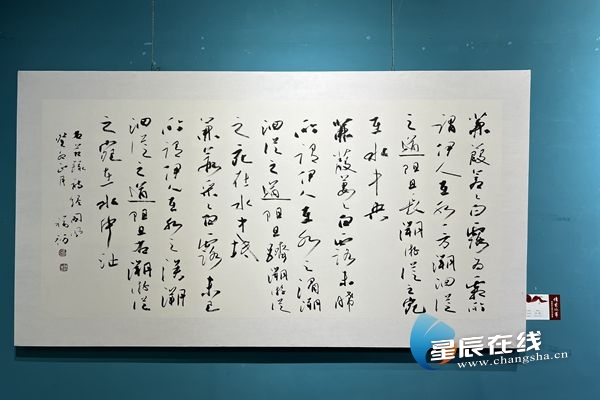 蒹葭蒼蒼白露为霜所
謂伊人在水一方溯洄從
之道阻且長溯游從之宛
在水中央
蒹葭萋萋白露未晞
所謂伊人在水之湄溯
洄從之道阻且躋溯游從
之宛在水中坻
蒹葭采采白露未已
所謂伊人在水之涘溯
洄從之道阻且右溯游從
之宛在水中沚
詩經國風
癸卯正月
星辰在线
www.changsha.cn